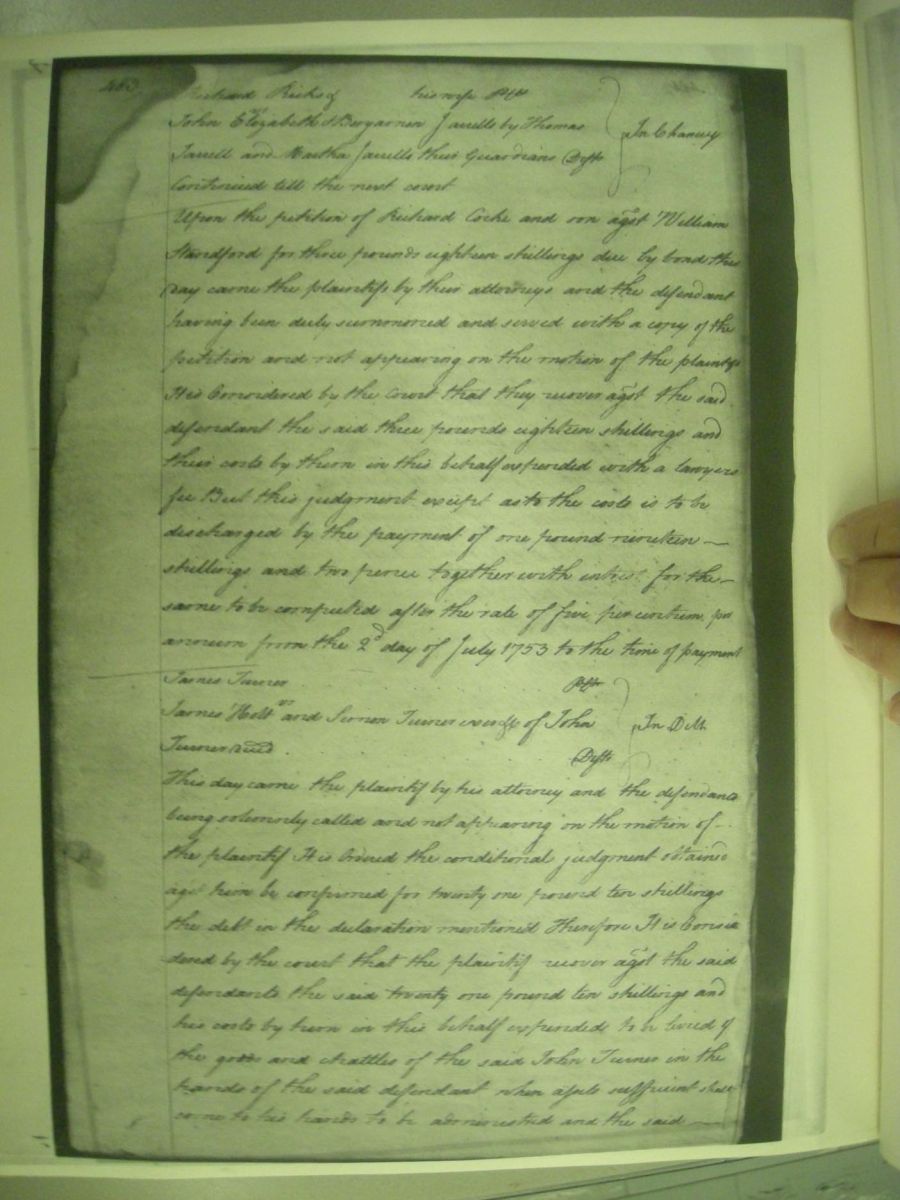 Richard Ricks & his wife Plts
John Elizabeth & Benjamin Jarrells by Thomas
Jarrell and Martha Jarrells their Guardians Defts
In Chancery
Continued till the next court
Upon the petition of Richard Cocke and son agst William
Standford for three pounds eighteen shillings due by bond this
day came the plaintifs by their attorneys and the defendant
having been duly summoned and served with a copy of the
petition and not appearing on the motion of the plaintifs
It is Considered by the Court that they recover agst the said
defendant the said three pounds eighteen shillings and
their costs by them in this behalf expended with a lawyers
fee But this judgment except as to the costs is to be
discharged by the payment of one pound nineteen
shillings and two pence together with interest for the
same to be computed after the rate of five per centum per
annum from the 2d day of July 1753 to the time of payment
James Turner Plts
James Holt and Simon Turner of John
Turner decd Defts
In Debt
This day came the plaintif by his attorney and the defendants
being solemnly called and not appearing on the motion of
the plaintif It is Ordered the conditional judgment obtained
agst him be confirmed for twenty one pound ten shillings
the debt in the declaration mentioned Therefore It is Consi
dered by the court that the plaintif recover agst the said
defendants the said twenty one pound ten shillings and
his costs by him in this behalf expended to be levied of
the goods and chattles of the said John Turner in the
hands of the said defendant when assets sufficient shall
come to his hands to be administred and the said